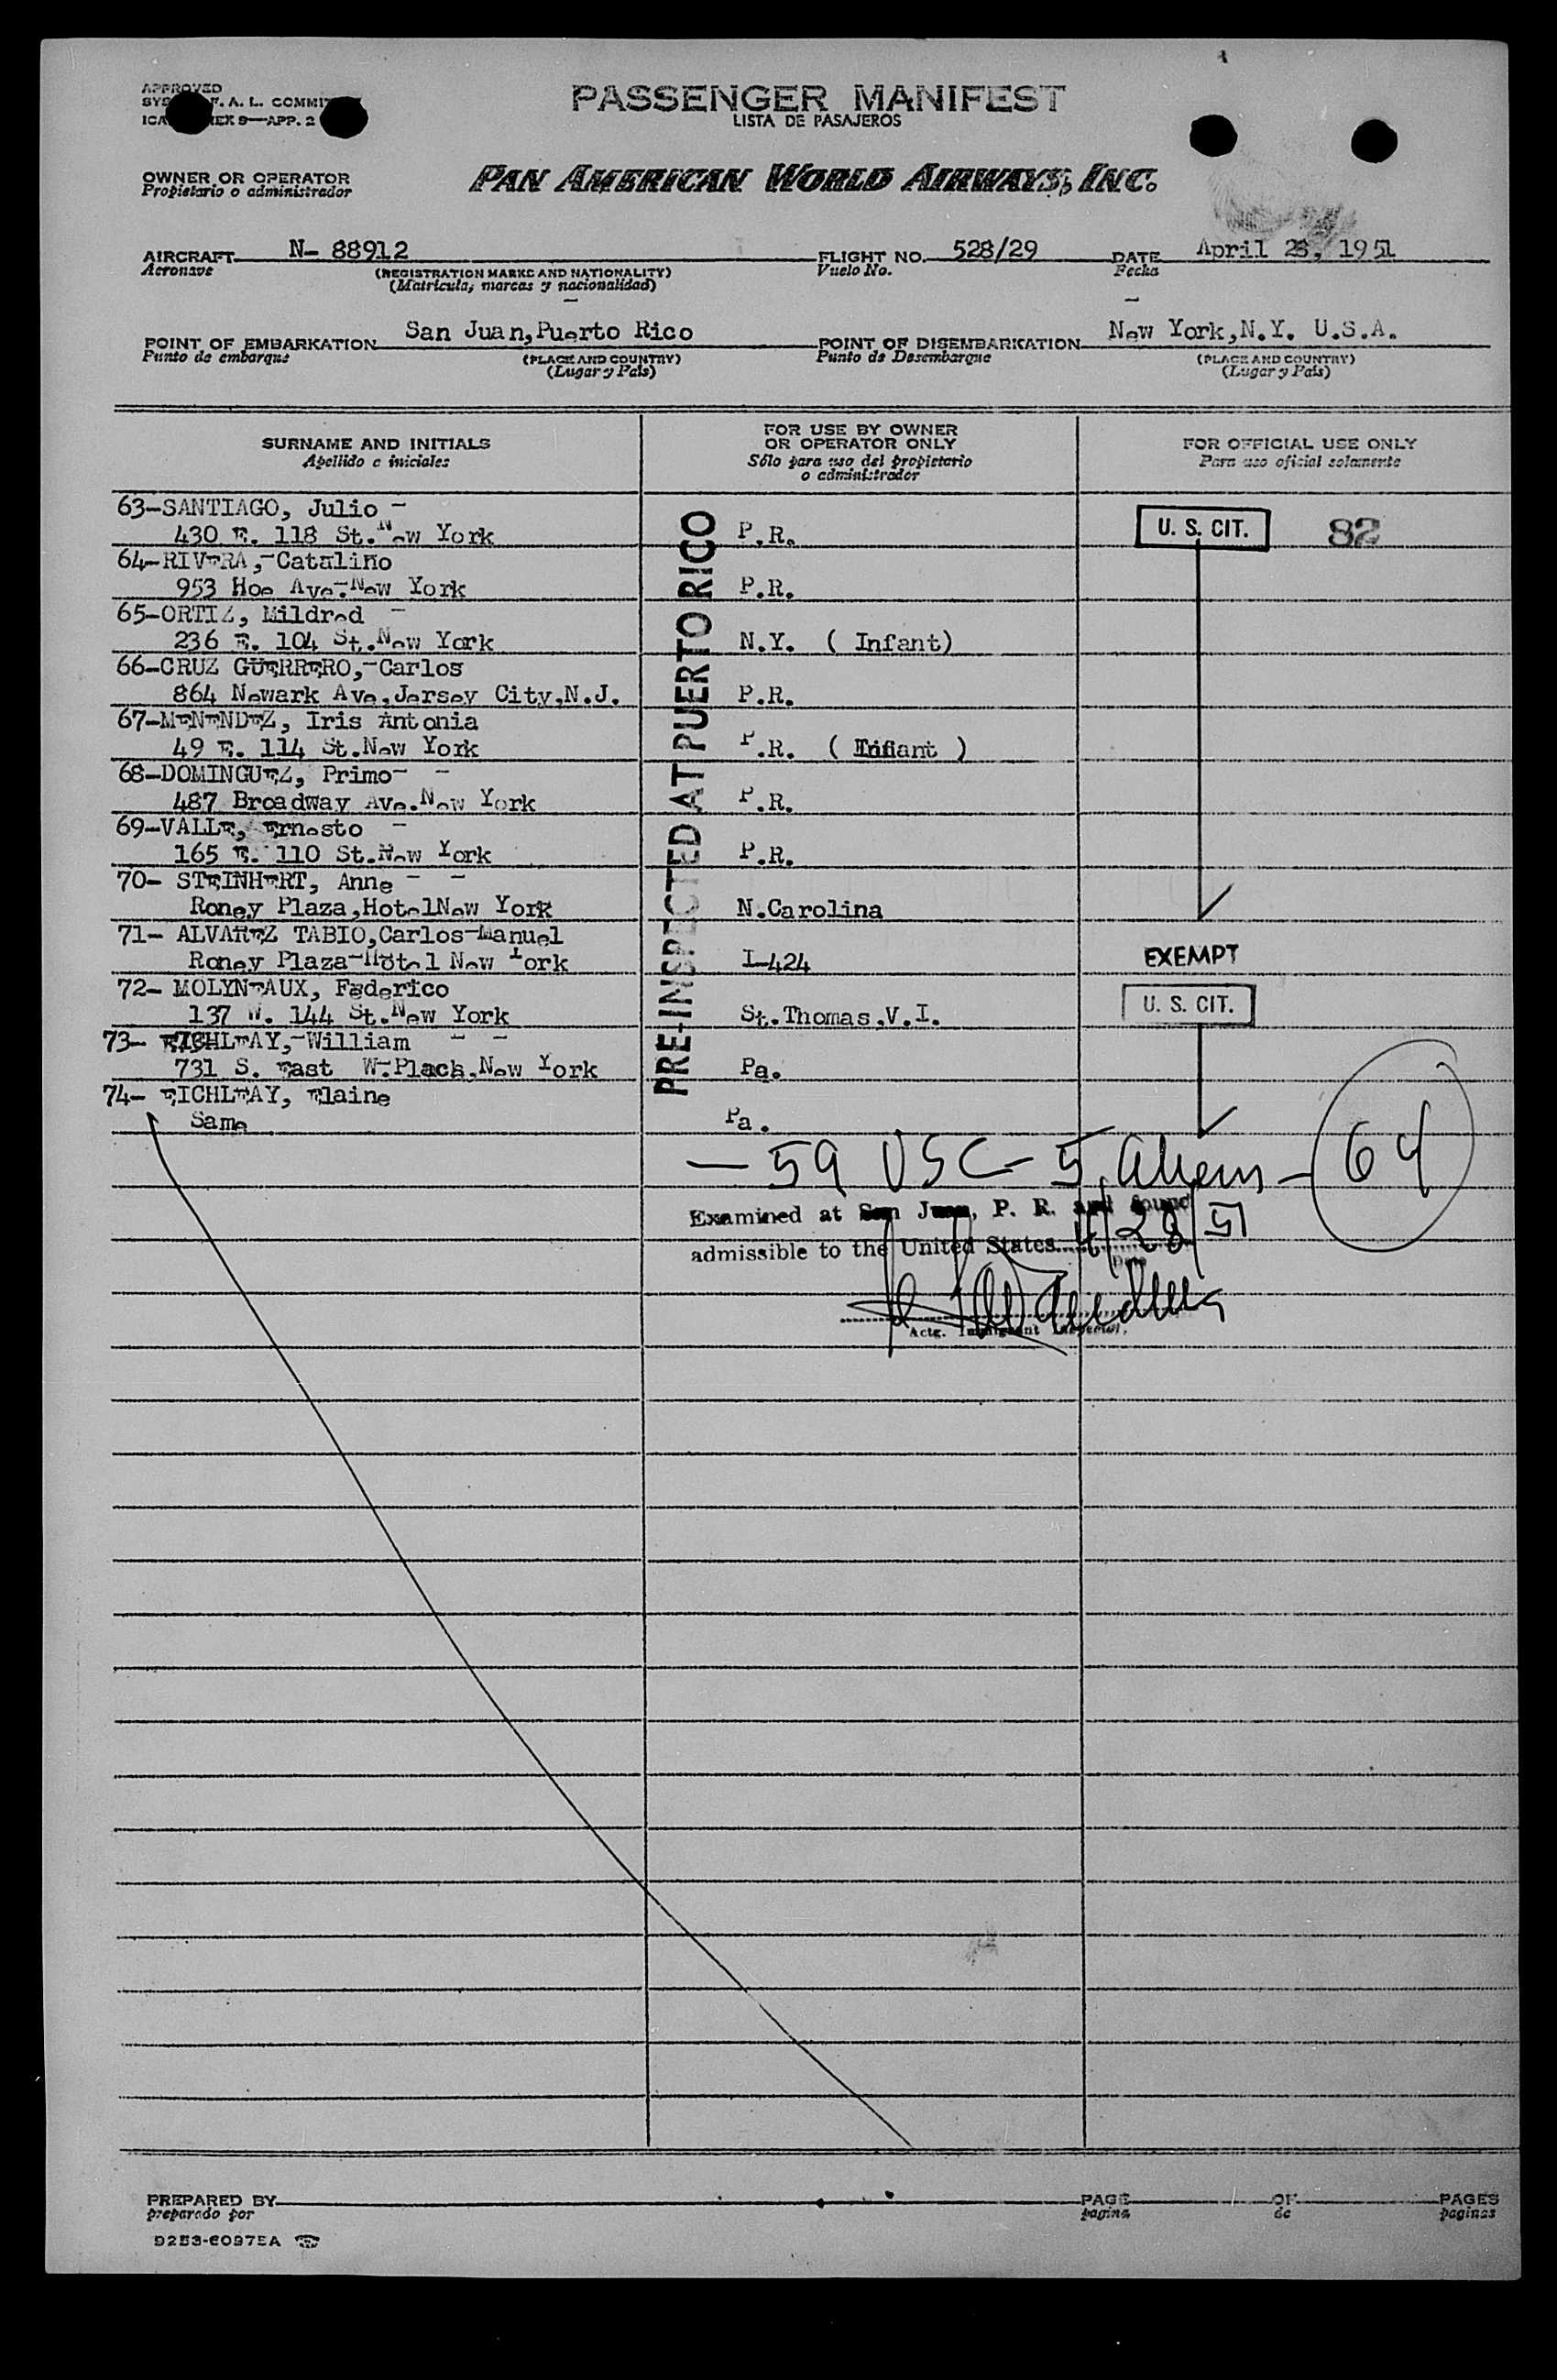 PASSENGER MANIFEST
LISTA DE PASAJEROS
APPROVED
F. A. L.
9—APP. 2
OWNER OR OPERATOR
Propietario o administrador
PAN AMERICAN WORLD AIRWAYS, INC.
AIRCRAFT N- 88912 FLIGHT NO. 528/29 DATE April 28, 1951
Aeronave (REGISTRATION MARKS AND NATIONALITY) Vuelo No. Fecha
(Matricula, marcas y nacionalidad)
POINT OF EMBARKATION San Juan,Puerto Rico POINT OF DISEMBARKATION New York,N.Y. U.S.A.
Punto de embarque (PLACE AND COUNTRY) Punto de Desembarque (PLACE AND COUNTRY)
(Lugar y País) (Lugar y País)
SURNAME AND INITIALS FOR USE BY OWNER OR OPERATOR ONLY FOR OFFICIAL USE ONLY
Apellido e iniciales Sólo para uso del propietario o administrador Para uso oficial solamente
PRE-INSPECTED AT PUERTO RICO
63-SANTIAGO, Julio -
430 E. 118 St.New York P.R. U. S. CIT. 82
64-RIVERA,-Catalino
953 Hoe Ave.New York P.R.
65-ORTIZ, Mildred -
236 E. 104 St.New York N.Y. ( Infant)
66-CRUZ GUERRERO,-Carlos
864 Newark Ave,Jersey City,N.J. P.R.
67-MENENDEZ, Iris Antonia
49 E. 114 St.New York P.R. ( Infant )
68-DOMINGUEZ, Primo- -
487 Broadway Ave.New York P.R.
69-VALLE, Ernesto -
165 E. 110 St.New York P.R.
70- STEINHERT, Anne - -
Roney Plaza,HotelNew York N.Carolina
71- ALVAREZ TABIO,Carlos-Manuel
Roney Plaza-Hotel New York I-424 EXEMPT
72- MOLYNEAUX, Federico
137 W. 144 St.New York St.Thomas.V.I. U. S. CIT.
73- EICHLEAY,-William - -
731 S. East W.Place,New York Pa.
74- EICHLEAY, Elaine
Same Pa.
— 59 USC - 5 Aliens - 64
Examined at San Juan, P. R. and found
admissible to the United States 4/28/51
Date
Actg. Immigrant Inspector.
PREPARED BY PAGE OF PAGES
preparado por pagina de paginas